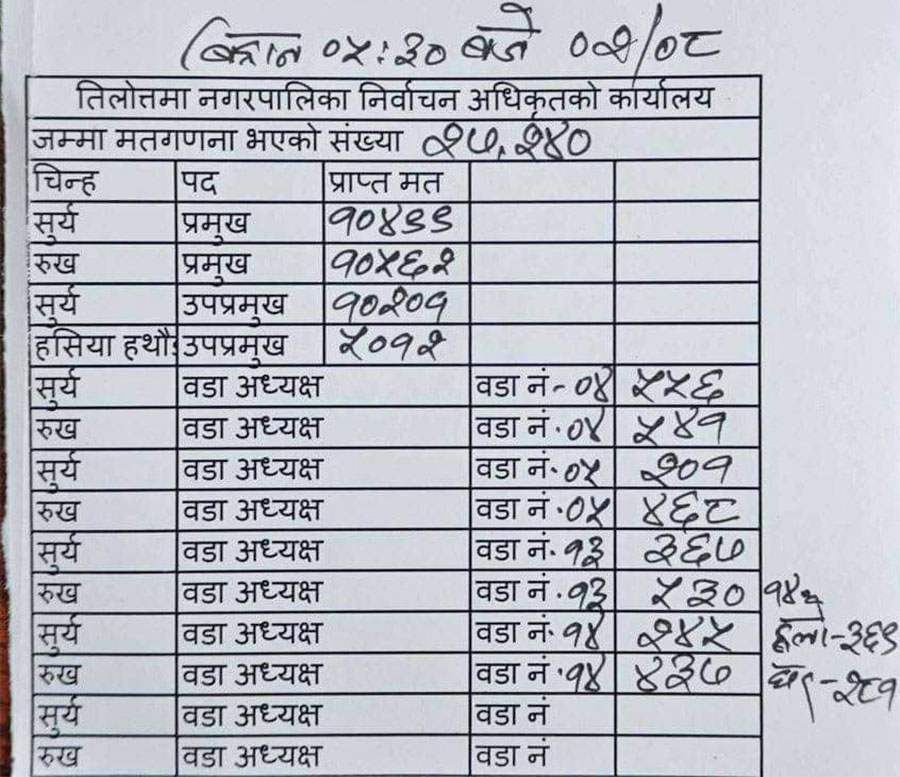 (बिहान ०५:३० बजे ०२/०८
तिलोत्तमा नगरपालिका निर्वाचन अधिकृतको कार्यालय
जम्मा मतगणना भएको संख्या २७,२४०
चिन्ह पद प्राप्त मत
सुर्य प्रमुख १०४९९
रुख प्रमुख १०५६२
सुर्य उपप्रमुख १०२०१
हसिया हथौ उपप्रमुख ५०१२
सुर्य वडा अध्यक्ष वडा नं-०४ ५५६
रुख वडा अध्यक्ष वडा नं.०४ ५४१
सुर्य वडा अध्यक्ष वडा नं.०५ २०१
रुख वडा अध्यक्ष वडा नं.०५ ४६८
सुर्य वडा अध्यक्ष वडा नं.१३ ३६७
रुख वडा अध्यक्ष वडा नं.१३ ५३०
सुर्य वडा अध्यक्ष वडा नं.१४ २४५ हलो-३६९
रुख वडा अध्यक्ष वडा नं.१४ ४३७ घर-२८१
सुर्य वडा अध्यक्ष वडा नं
रुख वडा अध्यक्ष वडा नं